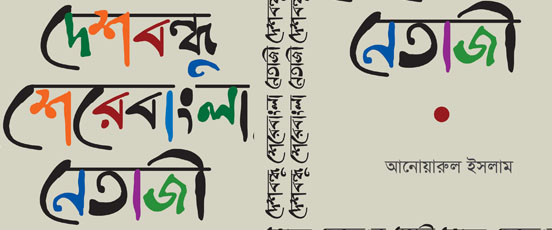 দেশবন্ধু
শেরেবাংলা
নেতাজী
দেশবন্ধু শেরেবাংলা নেতাজী দেশবন্ধু
দেশবন্ধু শেরেবাংলা নেতাজী দেশবন্ধু
নেতাজী
আনোয়ারুল ইসলাম